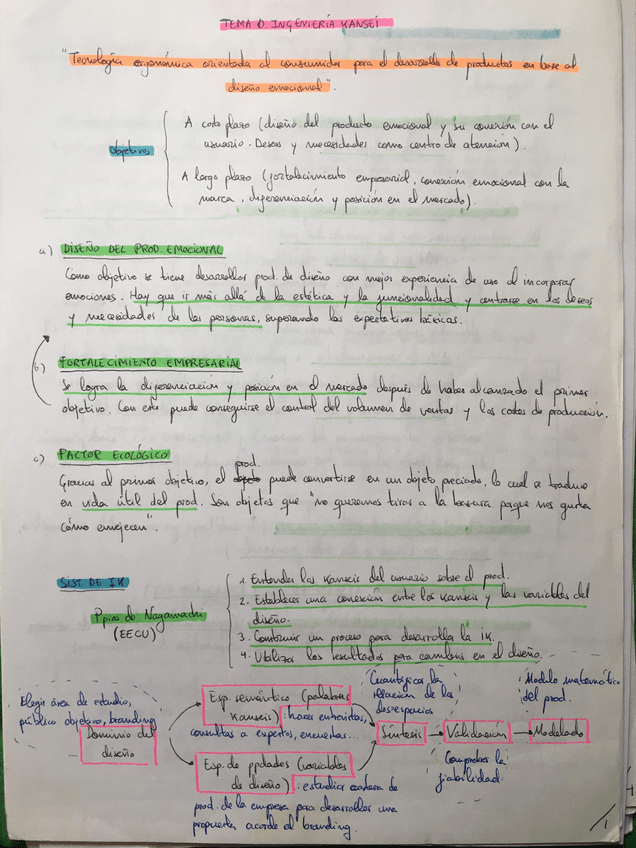 TEMA 0. INGENIERÍA KANSEI
"Tecnología ergonómica orientada al consumidor para el desarrollo de productos en base al
diseño emocional".
Objetivos
A corto plazo (diseño del producto emocional y su conexión con el
usuario. Deseos y necesidades como centro de atención).
A largo plazo (fortalecimiento empresarial, conexión emocional con la
marca, diferenciación y posición en el mercado).
a) DISEÑO DEL PROD. EMOCIONAL
Como objetivo se tiene desarrollar prod. de diseño con mejor experiencia de uso al incorporar
emociones. Hay que ir más allá de la estética y la funcionalidad y centrarse en los deseos
y necesidades de las personas, superando las expectativas básicas.
b) FORTALECIMIENTO EMPRESARIAL
Se logra la diferenciación y posición en el mercado después de haber alcanzado el primer
objetivo. Con este puede conseguirse el control del volumen de ventas y los costes de producción.
c) FACTOR ECOLÓGICO
prod.
Gracias al primer objetivo, el objeto puede convertirse en un objeto preciado, lo cual se traduce
en vida útil del prod. Son objetos que "no queremos tirar a la basura porque nos gusta
cómo envejecen".
SIST DE IK
Ppios de Nagamachi
(EECU)
1. Entender los Kanseis del usuario sobre el prod.
2. Establecer una conexión entre los Kanseis y las variables del
diseño.
3. Construir un proceso para desarrolla la IK.
4. Utiliza los resultados para cambios en el diseño.
Elegir área de estudio,
público objetivo, branding
Dominio del
diseño
Esp. semántico (palabras
Kanseis): hacer entrevistas,
consultas a expertos, encuestas...
Esp. de ppdades (variables
de diseño): estudiar cartera de
prod. de la empresa para desarrollar una
propuesta acorde al branding.
Cuantificar la
relación de los
dos espacios
Síntesis
Validación
Comprobar la
fiabilidad
Modelo matemático
del prod.
Modelado
1